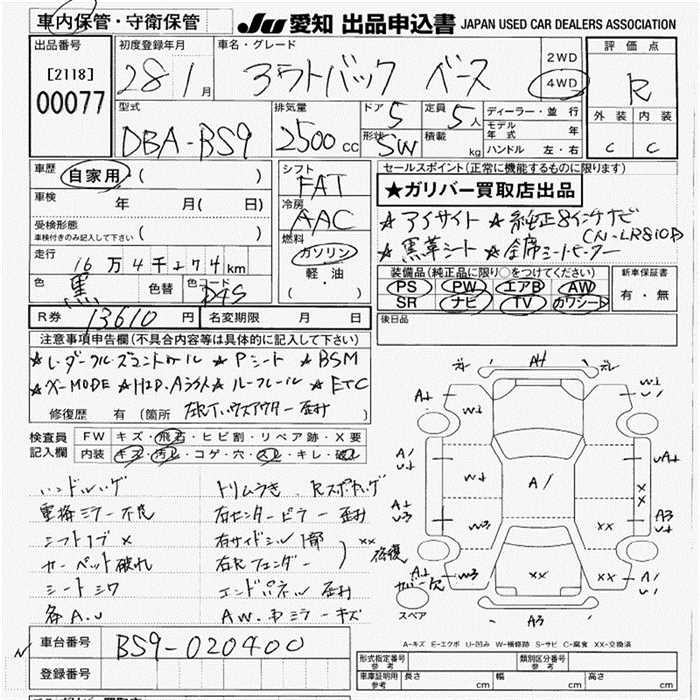 車内保管・守衛保管 JU 愛知 出品申込書 JAPAN USED CAR DEALERS ASSOCIATION
出品番号 初度登録年月 車名・グレード 2WD 評価点
[2118] 28 1月 アウトバック ベース 4WD R
00077 外装 内装
型式 排気量 ドア 5 定員 5人 ディーラー・並行
DBA-BS9 2500cc 形状 SW 積載 kg モデル年式 年
ハンドル 左・右 C C
車歴 自家用 ( ) シフト セールスポイント(正常に機能するものに限ります)
FAT ★ガリバー買取店出品
車検 年 月( 日) 冷房 AAC ★アイサイト ★純正8インチナビ
受検形態 燃料 CN-LR810D
車検付きのみ記入して下さい ( ) ガソリン ★黒革シート ★全席シートヒーター
走行 16万4千274km 軽・油 装備品(純正品に限り○をつけてください) 新車保証書
色 黒 色替 色コード D4S ( ) PS PW エアB AW 有・無
SR ナビ TV カワシート
R券 13610円 名変期限 月 日 後日品
注意事項申告欄(不具合内容等は具体的に記入して下さい)
★レーダークルズコントロール ★Pシート ★BSM
★X-MODE ★HID.Aライト ★ルーフレール ★ETC
修復歴 有 (箇所
検査員 FW キズ・飛石・ヒビ割・リペア跡・X要
記入欄 内装 キズ・汚レ・コゲ・穴・スレ・キレ・破レ
ハンドルハゲ トリムうき、Rスポイラーハゲ
電格ミラー不良 右センターピラー歪み
シフトノブ X 右サイドシル1部
カーペット破れ 右Rフェンダー XX修復
シートシワ エンドパネル歪み
各A.U AW.ドミラーキズ
スペア
A-キズ E-エクボ U-凹み W-補修跡 S-サビ C-腐食 XX-交換済
車台番号 BS9-020400
登録番号
形式指定番号 参考 類別区分番号 参考
車庫証明用 参考 長さ cm 幅 cm 高さ cm